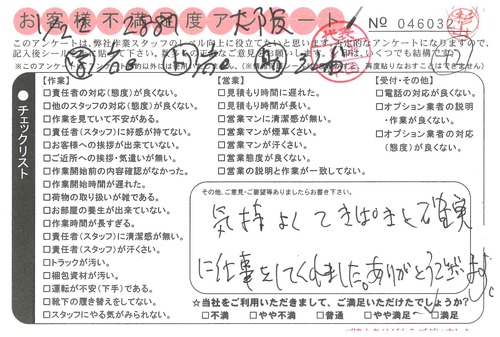 お客様不満足度アンケート
No 046032
このアンケートは、弊社作業スタッフのレベル向上に役立てたいと思います。否定的なアンケートになりますので、
【作業】
□責任者の対応(態度)が良くない。
□他のスタッフの対応(態度)が良くない。
□作業を見ていて不安がある。
□責任者(スタッフ)に好感が持てない。
□お客様への挨拶が出来ていない。
□ご近所への挨拶・気遣いが無い。
□作業開始前の内容確認がなかった。
□作業開始時間が遅れた。
□荷物の取り扱いが雑である。
□お部屋の養生が出来ていない。
□作業時間が長すぎる。
□責任者(スタッフ)に清潔感が無い。
□責任者(スタッフ)が汗くさい。
□トラックが汚い。
□梱包資材が汚い。
□運転が不安(下手)である。
□靴下の履き替えをしてない。
□スタッフにやる気がみられない。
【営業】
□見積もり時間に遅れた。
□見積もり時間が長い。
□営業マンに清潔感が無い。
□営業マンが煙草くさい。
□営業マンが汗くさい。
□営業態度が良くない。
□営業の説明と作業が一致してない。
【受付・その他】
□電話の対応が良くない。
□オプション業者の説明
・作業が良くない。
□オプション業者の対応
(態度)が良くない。
チェックリスト
その他、ご意見・ご要望等ありましたらお書き下さい。
気持よくてきぱきと確実
に仕事をしてくれました。ありがとうございます。
☆当社をご利用いただきまして、ご満足いただけたでしょうか?
□不満 □やや不満 □普通 □やや満足 □満足